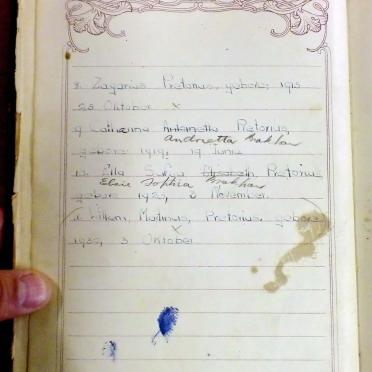 8. Zagarias Pretorius, gebore, 1915
25 Oktober x
9 Catharina Antoinetta Pretorius,
Andrietta
gebore 1919, 19 Junie
10 Ella Sofya Elizabeth Pretorius
Elsie Sophia
gebore 1923, 8 November.
Willem, Martinus, Pretorius, gebore
x
1930, 3 Oktober